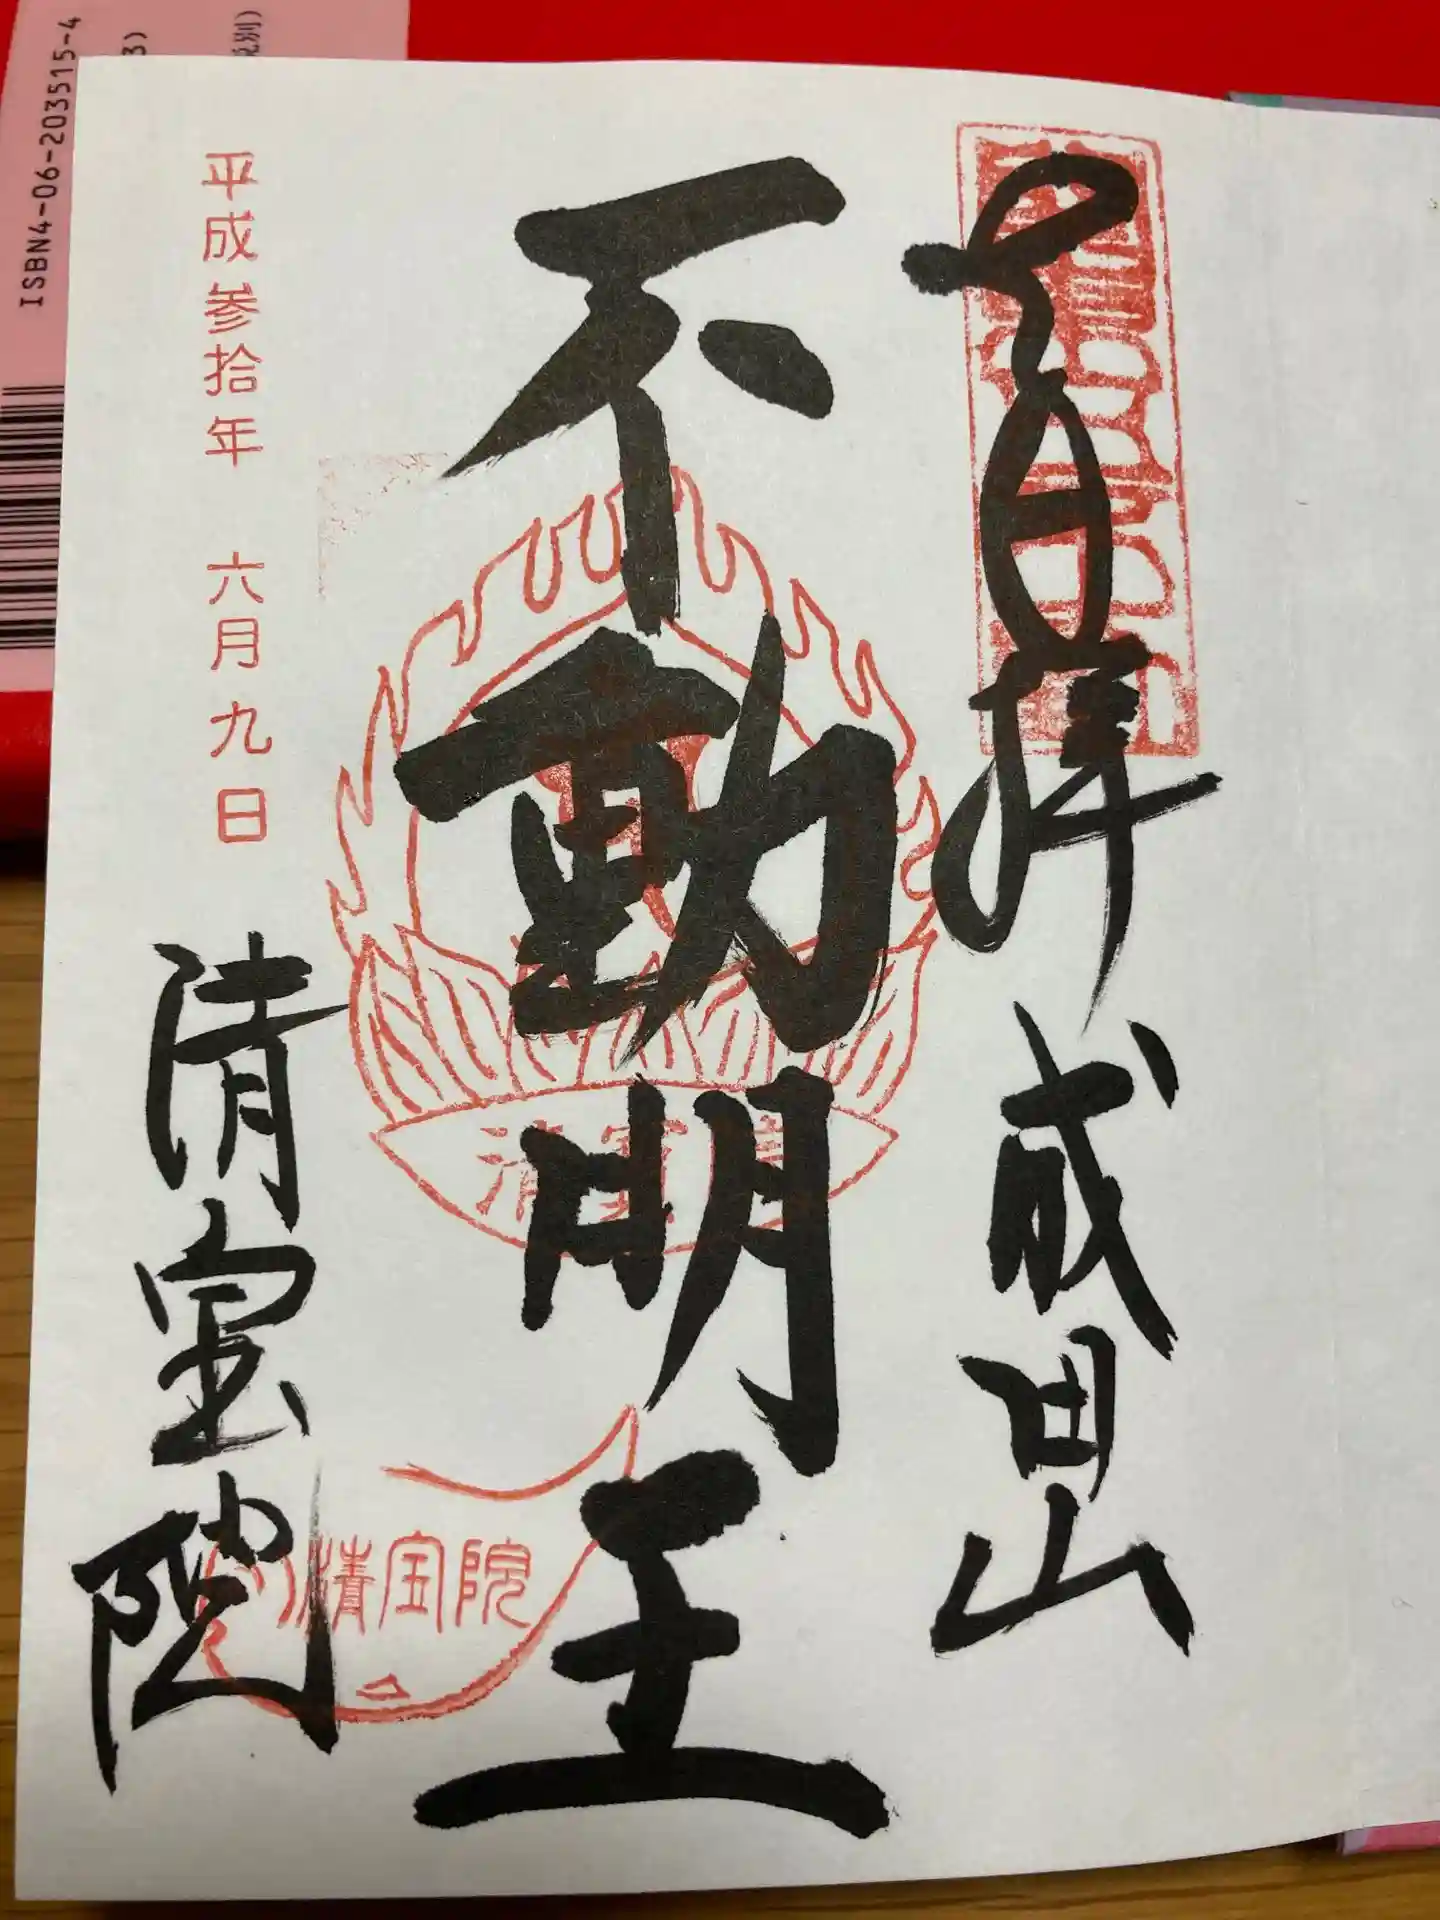 奉拝 成田山
不動明王
平成参拾年 六月九日
清宝院
清宝院
ISBN4-06-203515-4